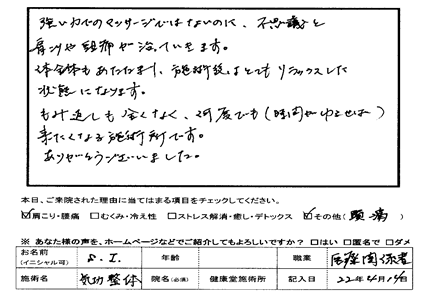 強い力でのマッサージではないのに、不思議と
肩こりや頭痛が治っていきます。
体全体もあたたまり、施術後はとてもリラックスした
状態になります。
もみ返しも全くなく、何度でも(時間がゆるせば)
来たくなる施術所です。
ありがとうございました。
本日、ご来院された理由に当てはまる項目をチェックしてください。
☑肩こり・腰痛 □むくみ・冷え性 □ストレス解消・癒し・デトックス ☑その他(頭痛)
※ あなた様の声を、ホームページなどでご紹介してもよろしいですか? □はい □匿名で □ダメ
お名前(イニシャル可) S.I. 年齢 職業 医療関係者
施術名 気功整体 院名(必須) 健康堂施術所 記入日 22年4月14日